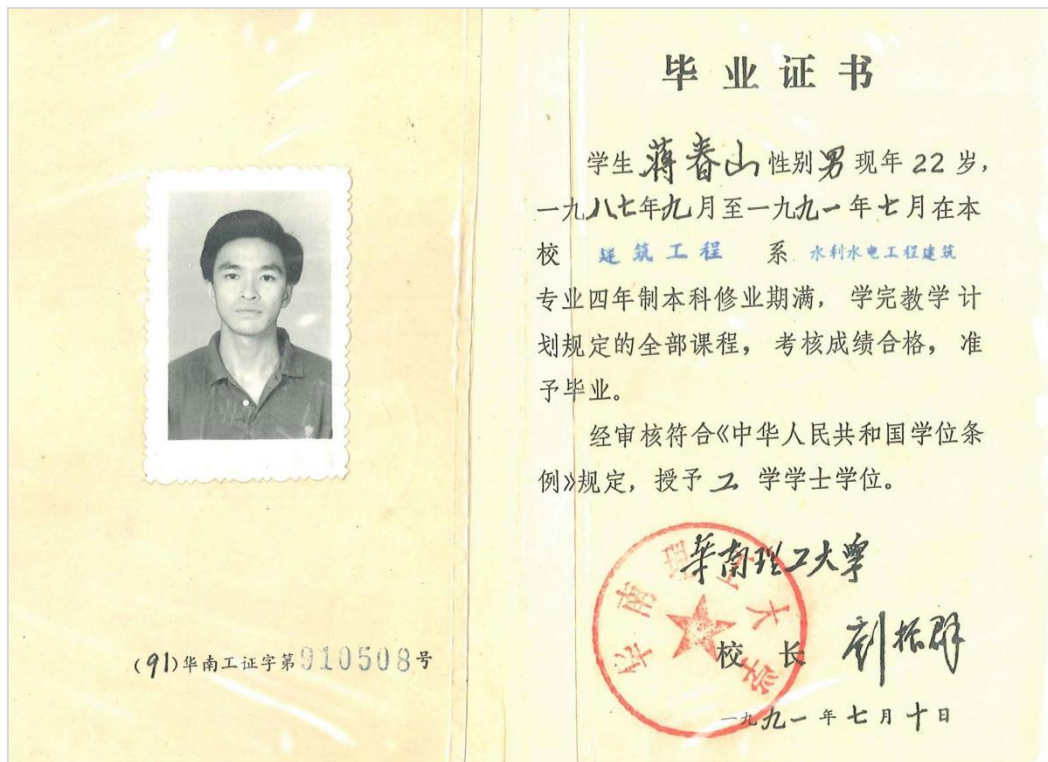 (91)华南工证字第910508号
毕业证书
学生 蒋春山 性别 男 现年 22 岁,
一九八七年九月至一九九一年七月在本
校 建筑工程 系 水利水电工程建筑
专业四年制本科修业期满, 学完教学计
划规定的全部课程, 考核成绩合格, 准
予毕业。
经审核符合《中华人民共和国学位条
例》规定, 授予 工 学学士学位。
华南理工大学
华南理工大学
校 长 刘振群
一九九一年七月十日